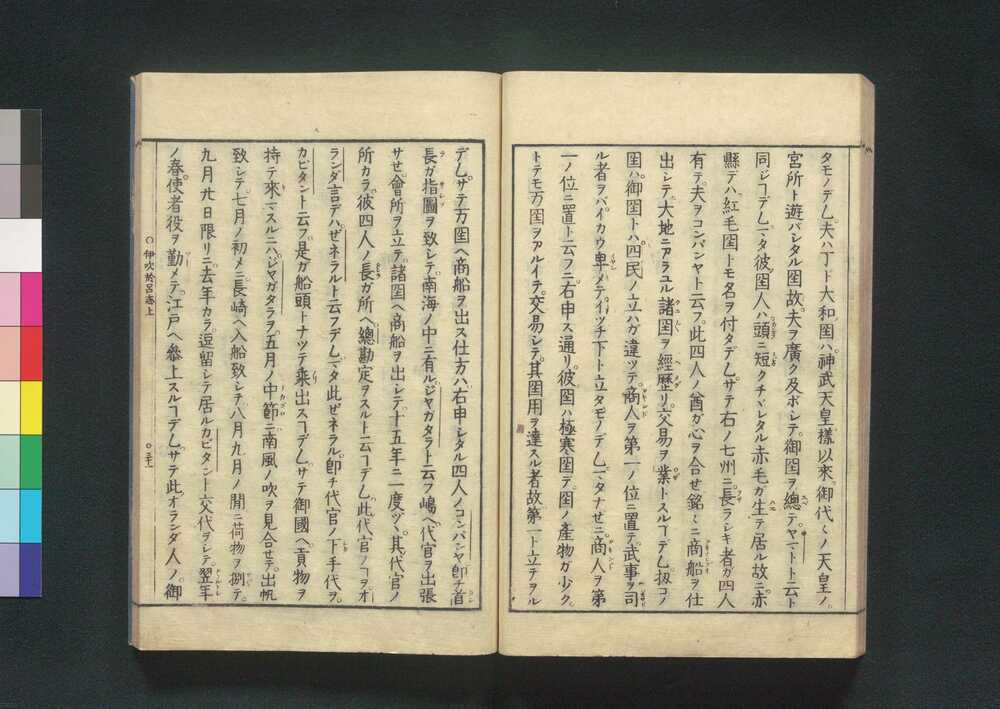 タモノデム夫ハ丁ド大和囯ハ神武天皇様以來御代〻ノ天皇ノ
宮所ト遊バシタル囯故夫ヲ廣ク及ボシテ御囯ヲ總テヤマトト云ト
同ジヿデムマタ彼囯人ハ頭ニ短クチヾレタル赤毛ガ生テ居ル故ニ赤
縣デハ紅毛囯トモ名ヲ付タデムサテ右ノ七州ニ長ラシキ者ガ四人
有テ夫ヲコンパンヤト云フ此四人ノ酋ガ心ヲ合セ銘〻ニ商船ヲ仕
出シテ大地ニアラユル諸囯ヲ經歷リ交易ヲ業トスルヿデム扨コノ
囯ハ御囯トハ四民ノ立ハガ違ツテ商人ヲ第一ノ位ニ置テ武事ヲ司
ル者ヲバイカウ卑メテイツチ下ト立タモノデムマタナゼニ商人ヲ第
一ノ位ニ置ト云フニ右申ス通リ彼囯ハ極寒囯デ囯ノ產物ガ少ク
トテモ万囯ヲアルイテ交易シテ其囯用ヲ達スル者故第一ト立テヲル
デムサテ万囯ヘ商船ヲ出ス仕方ハ右申シタル四人ノコンパンヤ卽チ酋
長ガ指圖ヲ致シテ南海ノ中ニ有ルジヤガタラト云フ嶋ヘ代官ヲ出張
サセ會所ヲ立テ諸囯ヘ商船ヲ出シテ十五年ニ一度ヅヽ其代官ノ
所カラ彼四人ノ長ガ所ヘ總勘定ヲスルト云ヿデム此代官ノヿヲオ
ランダ言デハゼネラルト云フデムマタ此ゼネラル卽チ代官ノ下手代ヲ
カピタント云フ是ガ船頭トナツテ乘出スヿデムサテ御國ヘ貢物ヲ
持テ來マスルニハジヤガタラヲ五月ノ中節ニ南風ノ吹ヲ見合セテ出帆
致シテ七月ノ初メニ長崎ヘ入船致シテ八月九月ノ間ニ荷物ヲ捌テ
九月廿日限リニ去年カラ逗留シテ居ルカピタント交代ヲシテ翌年
ノ春使者役ヲ勤メテ江戸ヘ參上スルヿデムサテ此オランダ人ノ御
伊吹於呂志上